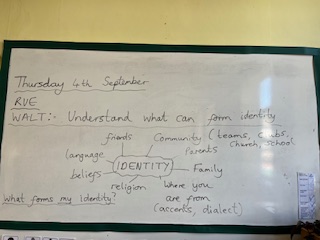 Thursday 4th September
RVE
WALT:- Understand what can form identity
friends
Community (teams, clubs,
church, school
parents
language
IDENTITY
Family
beliefs
religion
Where you
are from
(accents, dialect)
What forms my identity?